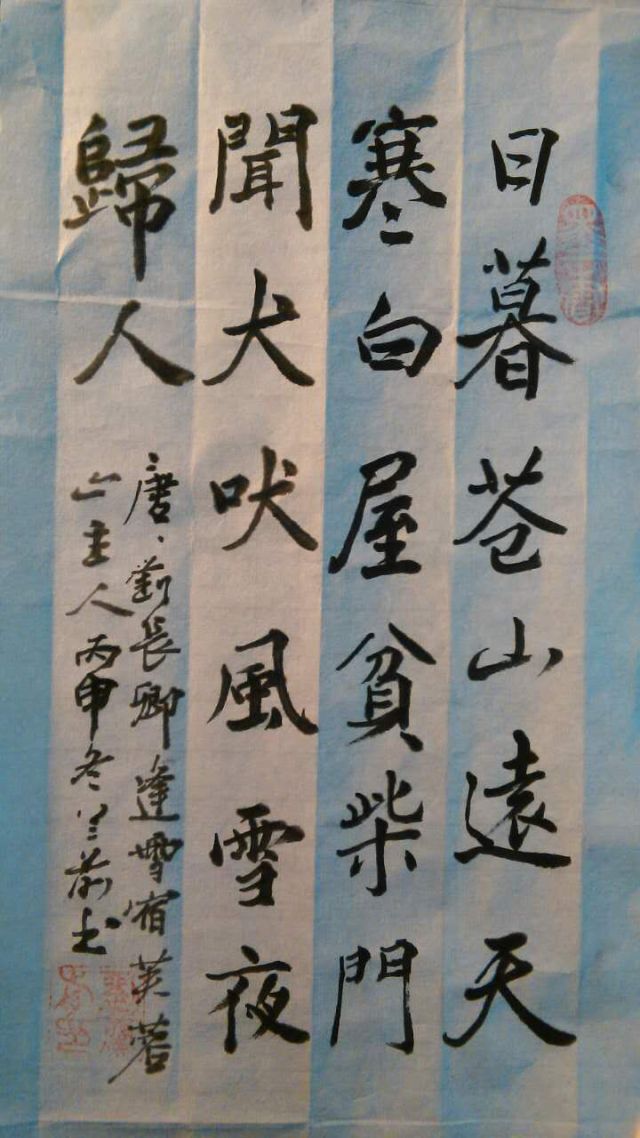 日暮苍山遠天
寒白屋貧柴門
聞犬吠風雪夜
歸人
唐、劉長卿逢雪宿芙蓉
山主人丙申冬